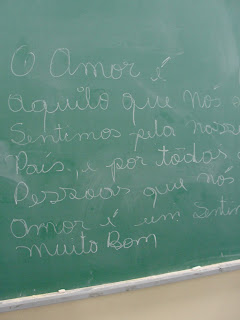 O Amor é
aquilo que nós
Sentemos pela nossa
País, e por todas
Pessoas que nós
amor é um
muito Bom